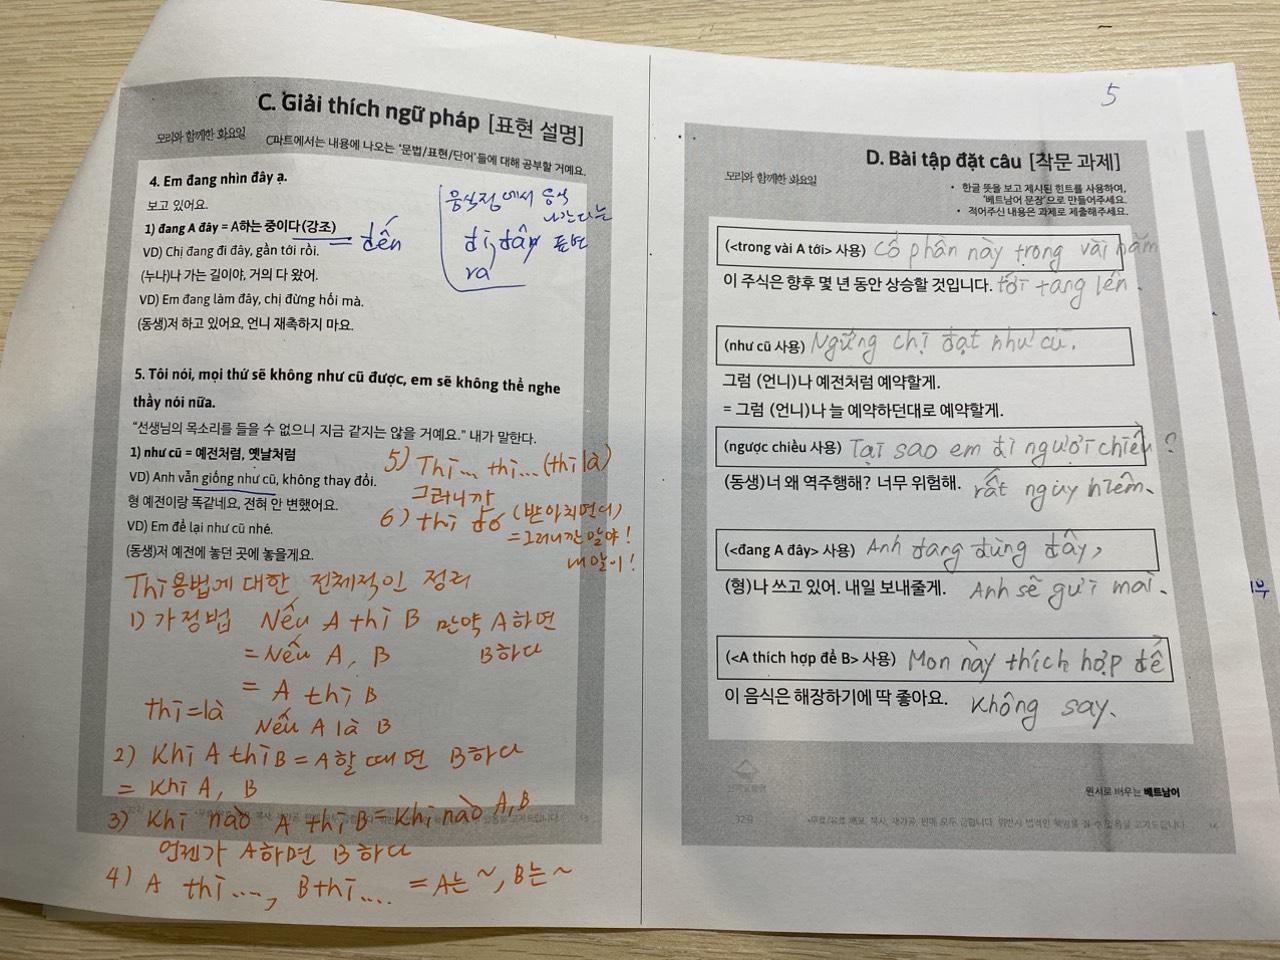 C. Giải thích ngữ pháp [표현 설명]
모리와 함께한 화요일
C파트에서는 내용에 나오는 '문법/표현/단어'들에 대해 공부할 거예요.
4. Em đang nhìn đây ạ.
보고 있어요.
1) đang A đây = A하는 중이다(강조)
= đến
VD) Chị đang đi đây, gần tới rồi.
(누나)나 가는 길이야, 거의 다 왔어.
VD) Em đang làm đây, chị đừng hối mà.
(동생)저 하고 있어요, 언니 재촉하지 마요.
음식점에서 음식
나간다는
đi, đây 표현
ra
5. Tôi nói, mọi thứ sẽ không như cũ được, em sẽ không thể nghe
thầy nói nữa.
"선생님의 목소리를 들을 수 없으니 지금 같지는 않을 거예요." 내가 말한다.
1) như cũ = 예전처럼, 옛날처럼
VD) Anh vẫn giống như cũ, không thay đổi.
형 예전이랑 똑같네요, 전혀 안 변했어요.
VD) Em để lại như cũ nhé.
(동생)저 예전에 놓던 곳에 놓을게요.
5) Thì... thì... (thì là)
그러니까
6) thì đó (받아치면서)
= 그러니깐 말야!
내 말이!
Thì용법에 대한 전체적인 정리
1) 가정법 Nếu A thì B 만약 A하면
= Nếu A, B B하다
= A thì B
thì=là
Nếu A là B
2) Khi A thì B = A할 때면 B하다
= Khi A, B
3) Khi nào A thì B = Khi nào A, B
언젠가 A하면 B하다
4) A thì ..., B thì .... = A는 ~, B는 ~
5
D. Bài tập đặt câu [작문 과제]
모리와 함께한 화요일
• 한글 뜻을 보고 제시된 힌트를 사용하여,
'베트남어 문장'으로 만들어주세요.
• 적어주신 내용은 과제로 제출해주세요.
(<trong vài A tới> 사용) Cổ phần này trong vài năm
이 주식은 향후 몇 년 동안 상승할 것입니다. tới tang lên.
(như cũ 사용) Ngững chị đạt như cũ.
그럼 (언니)나 예전처럼 예약할게.
= 그럼 (언니)나 늘 예약하던대로 예약할게.
(ngược chiều 사용) Tại sao em đi người chiều?
(동생)너 왜 역주행해? 너무 위험해. rất nguy hiểm.
(<đang A đây> 사용) Anh đang dùng đây,
(형)나 쓰고 있어. 내일 보내줄게. Anh sẽ gửi mai.
(<A thích hợp để B> 사용) Mon này thích hợp để
이 음식은 해장하기에 딱 좋아요. không say.
원서로 배우는 베트남어
32강